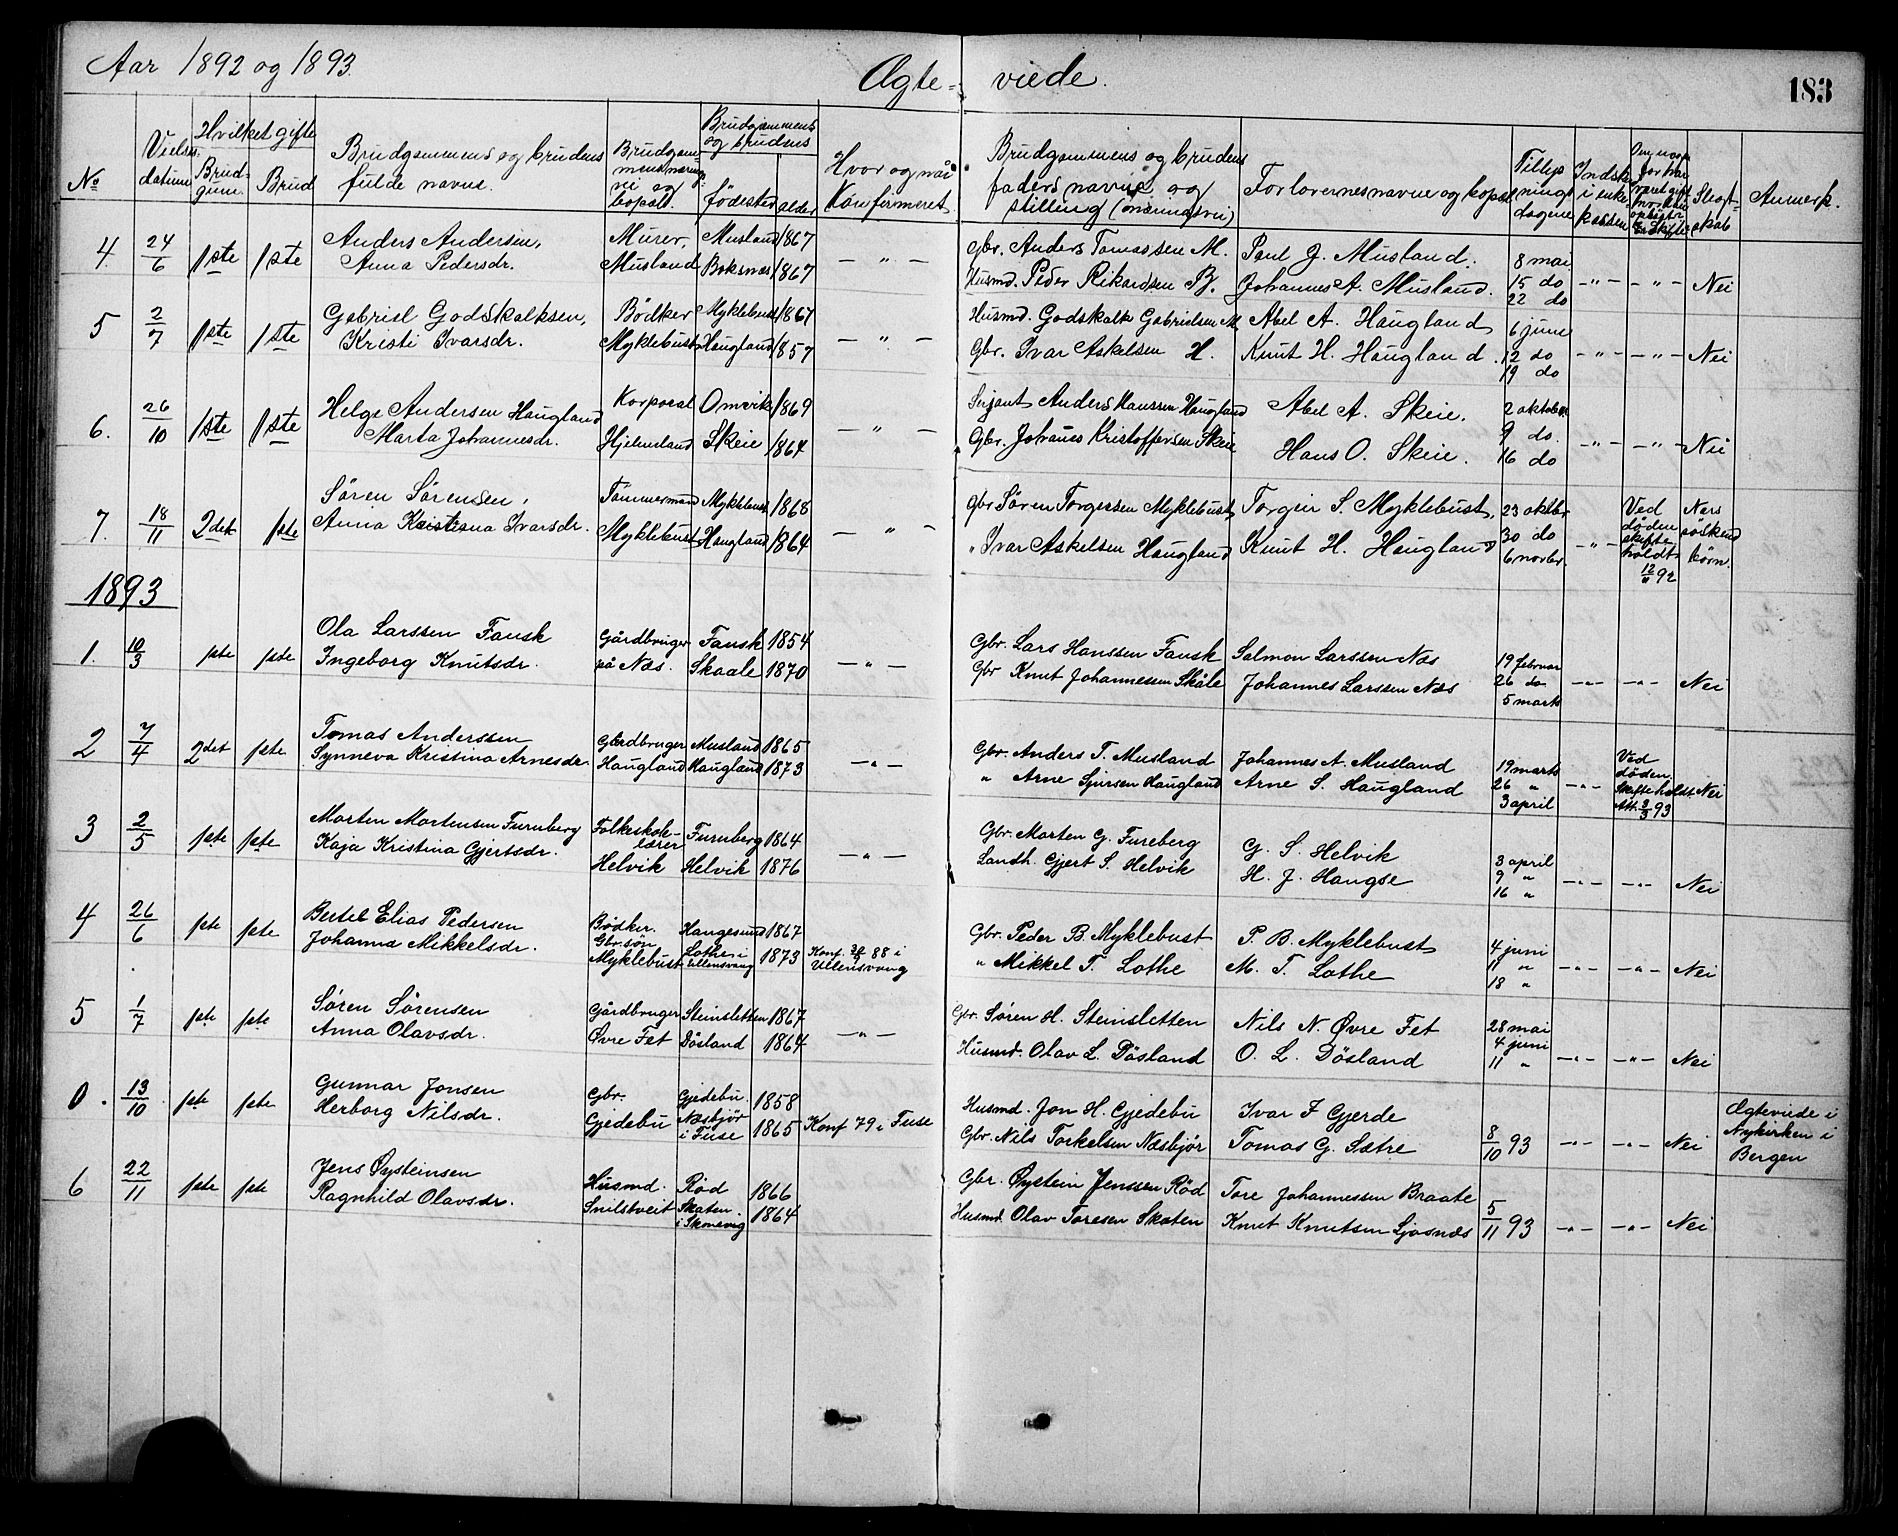 Aar 1892 og 1893.
Ægte- viede.
183
No
Vielses datum
Hvilket gifte
Brudgum. Brud
Brudgommens og brudens fulde navne.
Brudgommens næringsvei og bopæl.
Brudgommens og brudens
fødested alder
Hvor og når Konfirmeret
Brudgommens og brudens faders navne og stilling (næringsvei)
Forlovernes navne og bopæl
Tillysningsdagene
Slægtskab
Anmerk.
4. 24/6 1ste 1ste Anders Andersen, Murer, Musland 1867 Gbr. Anders Tomassen M. Paul J. Musland. 8 mai
Anna Pedersdr. Musland Boksnæs 1867 — " — Husmd. Peder Rikardsen B. Johannes A. Musland. 15 do — " — — " — Nei
22 do
5 2/7 1ste 1ste Gabriel Godskalksen, Bödker Myklebust 1867 Husmd. Godskalk Gabrielsen M. Abel A. Haugland 6 juni
Kristi Ivarsdr. Myklebust Haugland 1857 — " — Gbr. Ivar Askelsen H. Knut H. Haugland. 12 do — " — — " — Nei
19 do
6. 26/10 1ste 1ste Helge Andersen Haugland Korporal Omvik 1869 Serjant Anders Hanssen Haugland Abel A. Skeie. 2 oktober
Marta Johannesdr. Hjelmeland Skeie 1864 — " — Gbr. Johanes Kristoffersen Skeie Hans O. Skeie. 9 do. — " — — " — Nei
16 do
7. 18/11 2det 1ste Søren Sørensen, Tömmermand Myklebust 1868 Gbr Søren Torgersen Myklebust Torgeir S. Myklebust, 23 oktbr Ved døden skifte holdt 12/11 92 Næs søskend børn.
Anna Kristina Ivarsdr. Myklebust Haugland 1864 — " — " Ivar Askelsen Haugland Knut H. Haugland 30 do — " —
6 novbr.
1893
1. 10/3 1ste 1ste Ola Larssen Fausk Gårdbruger Fausk 1854 Gbr. Lars Hanssen Fausk Salmon Larssen Næs 19 februar
Ingeborg Knutsdr. på Næs. Skaale 1870 — " — Gbr Knut Johannessen Skåle Johannes Larssen Næs 26 do — " — — " — Nei
5 marts
2 7/4 2det 1ste Tomas Anderssen Gårdbruger Musland 1865 Gbr. Anders T. Musland Johannes A. Musland 19 marts Ved døden. Skifte holdt Att. 3/3 93
Synneva Kristina Arnesdr. Haugland Haugland 1873 — " — " Arne Sjursen Haugland Arne S. Haugland 26 " — " — Nei
3 april
3 2/5 1ste 1ste Morten Mortensen Furuberg Folkeskolelærer Furuberg 1864 Gbr. Morten G. Fureberg G. S. Helvik 3 april
Kaja Kristina Gjertsdr. Helvik Helvik 1876 — " — Landh. Gjert S. Helvik H. J. Haugse 9 " — " — — " — Nei
16 "
4 26/6 1ste 1ste Bertel Elias Pedersen Bødker. Gbr.søn Haugesund 1867 Gbr. Peder B. Myklebust P. B. Myklebust 4 juni
Johanna Mikkelsdr. Myklebust Lothe i Ullensvang 1873 88 i Ullensvang " Mikkel T. Lothe M. T. Lothe 11 " — " — — " — Nei
18 "
5 1/7 1ste 1ste Søren Sørensen Gårdbruger Steinsletten 1867 Gbr. Søren H. Steinsletten Nils N. Øvre Fet 28 mai
Anna Olavsdr. Øvre Fet Døsland 1864 — " — Husmd. Olav L. Døsland O. L. Døsland 4 juni — " — — " — Nei
11 "
0. 13/10 1ste 1ste Gunnar Jonsen Gbr. Gjedebu 1858 Husmd. Jon H. Gjedebu Ivar F Gjerde Ægteviede i Nykirken i Bergen
Herborg Nilsdr. Gjedebu Næsbjør i Fuse 1865 Konf 79 i Fuse Gbr. Nils Torkelsen Næsbjør Tomas G. Sætre 8/10 93 — " — — " — Nei
6 22/11 1ste 1ste Jens Øysteinsen Husmd. Rød 1866 Gbr. Øystein Jenssen Rød Tore Johannessen Braate
Ragnhild Olavsdr. Snilstveit Skaten. i Skonevig 1864 Husmd. Olav Toresen Skaten Knut Knutsen Ljosnæs 5/11 93 — " — — " — Nei